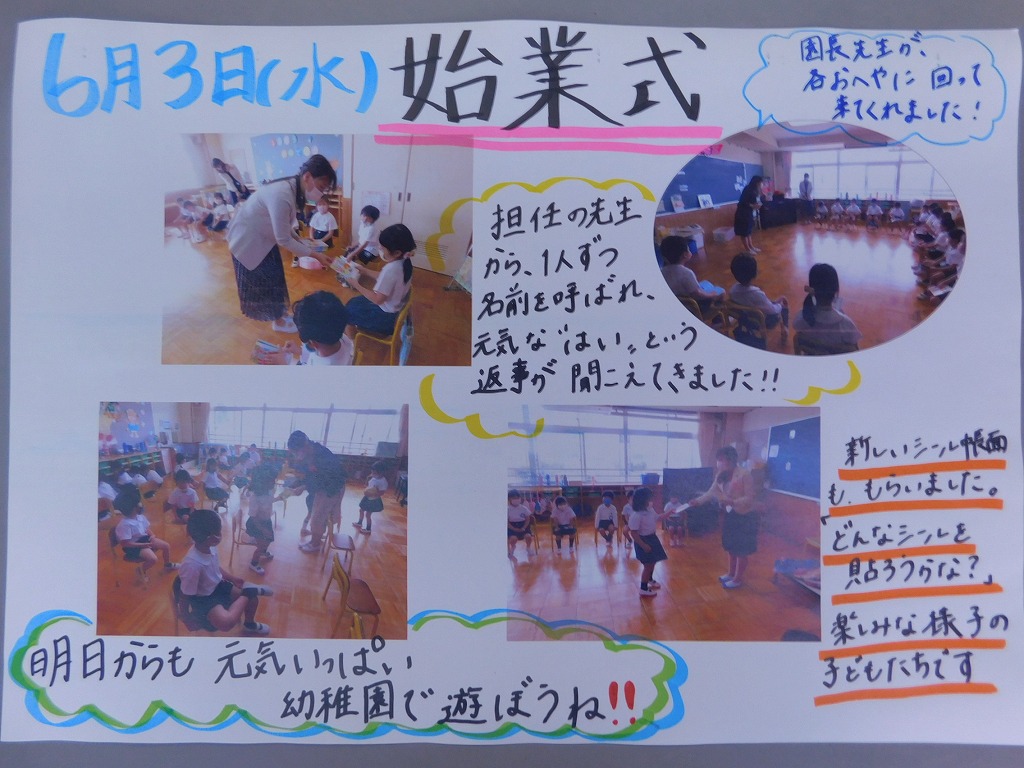 6月3日(水) 始業式
園長先生が、
各おへやに回って
来てくれました!
担任の先生
から、1人ずつ
名前を呼ばれ、
元気な“はい„という
返事が聞こえてきました!!
新しいシール帳面
も、もらいました。
「どんなシールを
貼ろうかな?」
楽しみな様子の
子どもたちです
明日からも 元気いっぱい
幼稚園で遊ぼうね!!